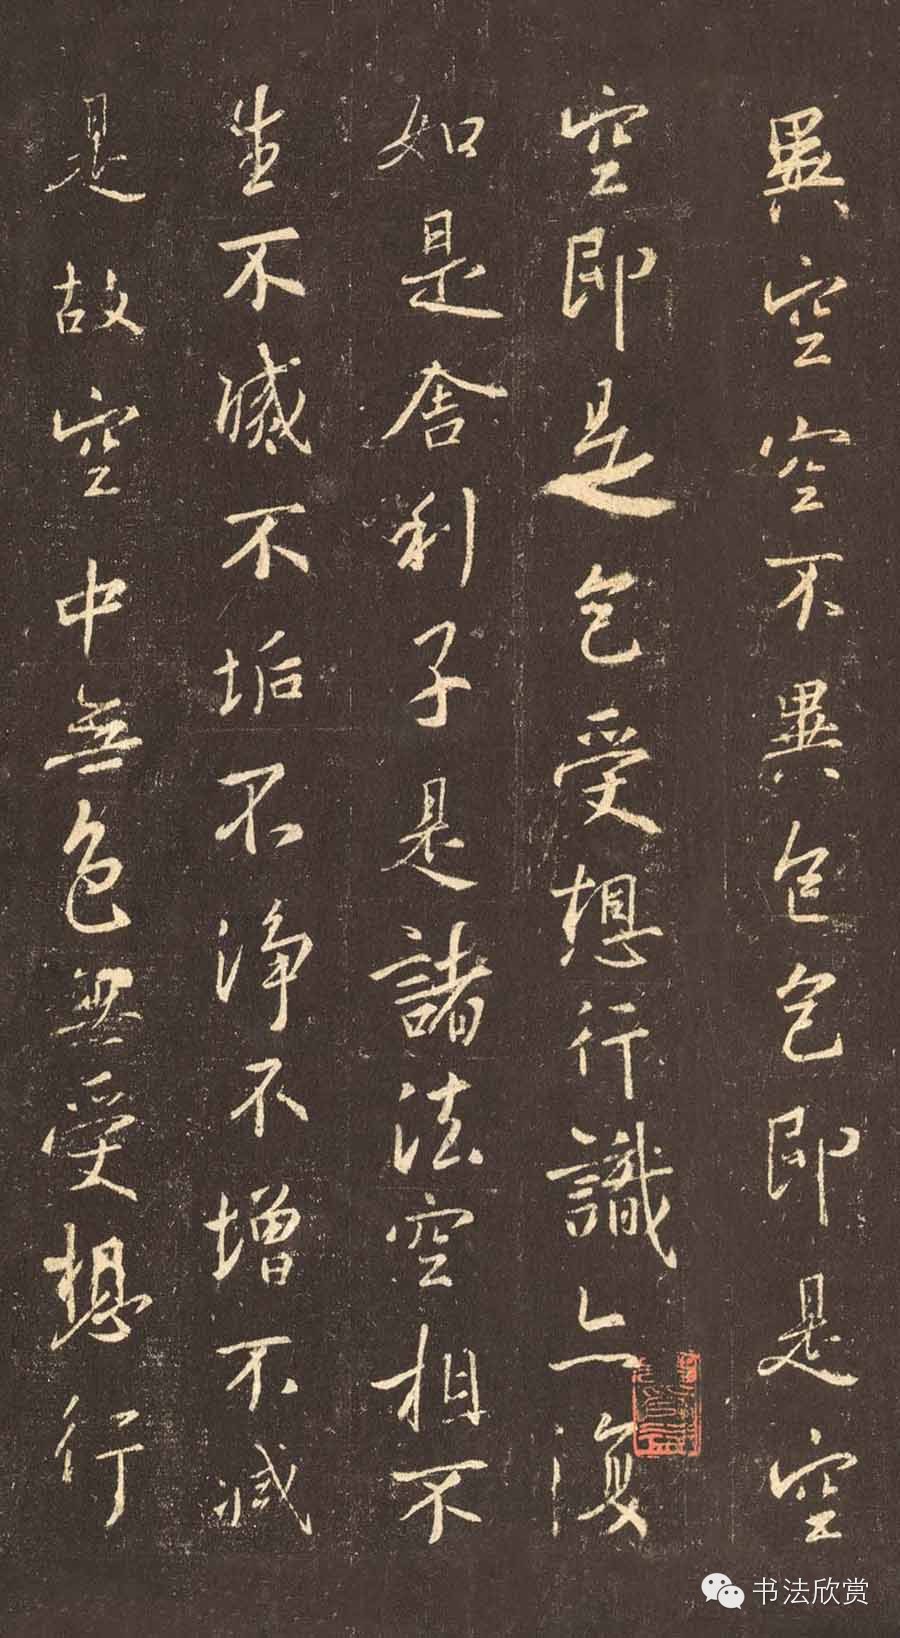 異空空不異色色即是空
空即是色受想行識亦復
如是舍利子是諸法空相不
生不滅不垢不淨不增不減
是故空中無色無受想行
书法欣赏